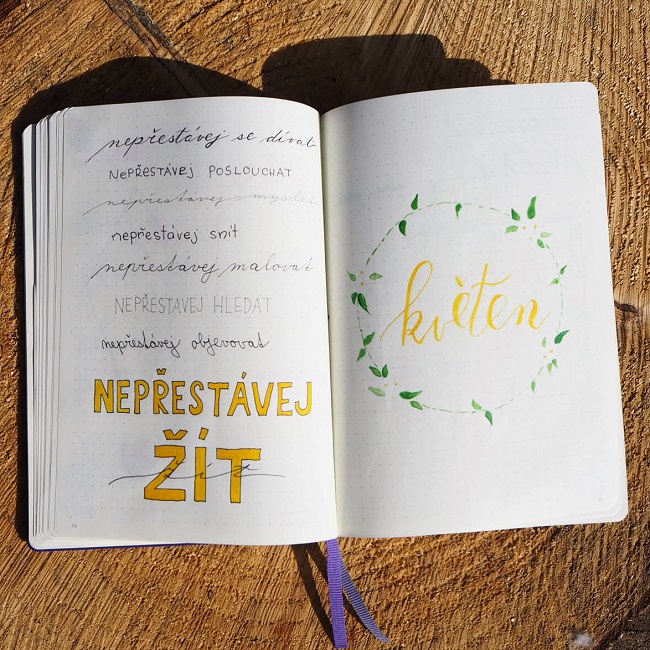 nepřestávej se dívat
NEPŘESTÁVEJ POSLOUCHAT
nepřestávej myslet
nepřestávej snít
nepřestávej malovat
NEPŘESTÁVEJ HLEDAT
nepřestávej objevovat
NEPŘESTÁVEJ
ŽÍT
žít
květen